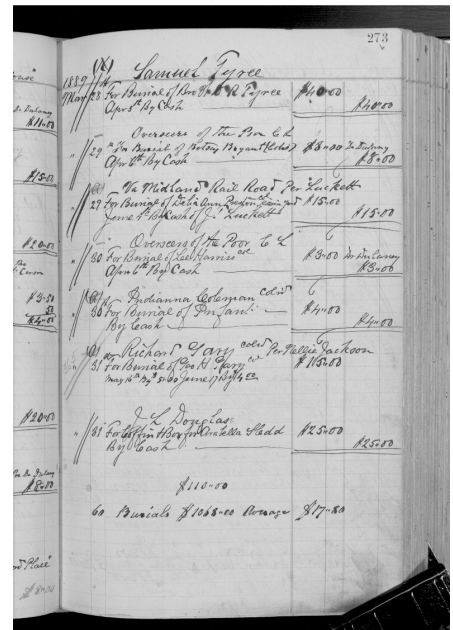 273
(X) Samuel Tyree
1889
Mar 28 For Burial of Bro R Tyree $40=00
Apr 5th By Cash $40=00
Overseers of the Poor C L
" 29 For Burial of Botany Bryant $8=00 Dr Dulaney
Apr By Cash $8=00
Va Midland Rail Road Per Luckett
" 29 For Burial of Delia Ann $15=00
June By Cash of J Luckett $15=00
Overseers of the Poor C L
" 30 For Burial of Lee Harris col $3=00 Dr Dulaney
Apr 6th By Cash $3=00
Indianna Coleman cold
" 30 For Burial of Infant $4=00
By Cash $4=00
Richard Gary cold Per Nellie Jackson
31 For Burial of Geo H Gary $15=00
May 16th By $5=00 June 17 By $4=00
J L Douglas
" 31 For Coffin & Box for Ora Sledd $25=00
By Cash $25=00
$110=00
60 Burials $1068=00 Average $17=80
Dr Dulaney
$11=00
$15=00
$20=00
$3=50
50
$4=00
$20=00
Dr Dulaney
$8=00
Place
$8=00